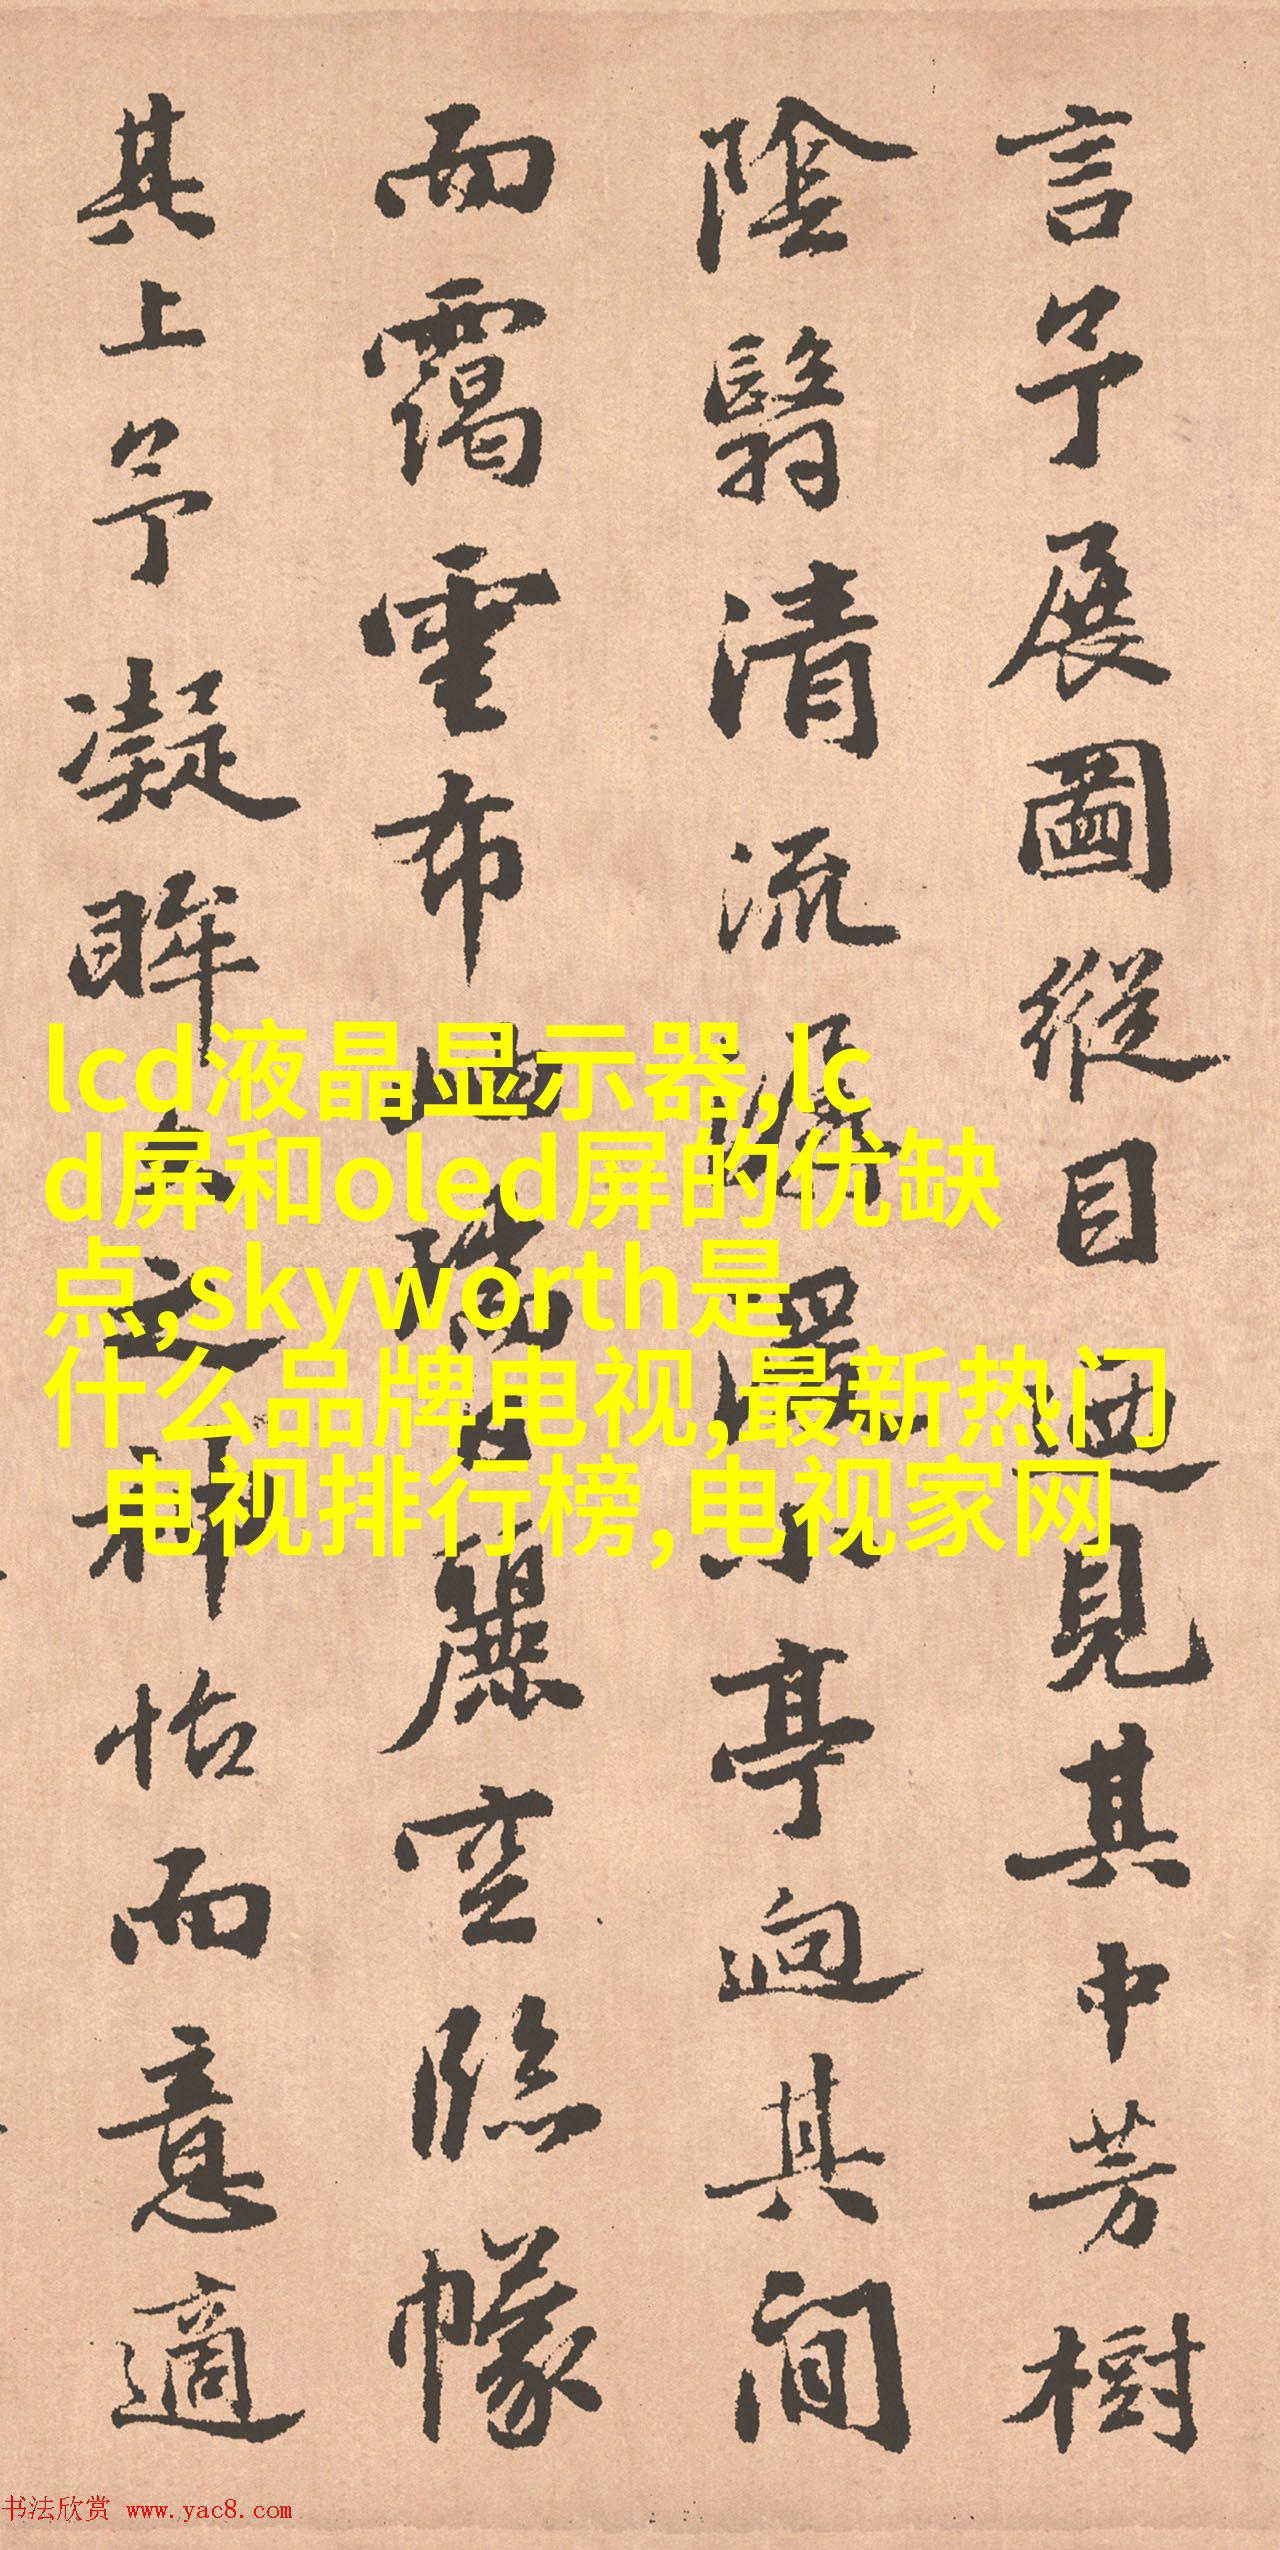 言予展圖縱目迺見其中芳樹
陰翳清流小亭迥其間
而靄雲布麗空臨幪
其上予凝眸久之神怡而意適
lcd液晶显示器,lc
d屏和oled屏的优缺
点,skyworth是
什么品牌电视,最新热门
电视排行榜,电视家网
书法欣赏 www.yac8.com